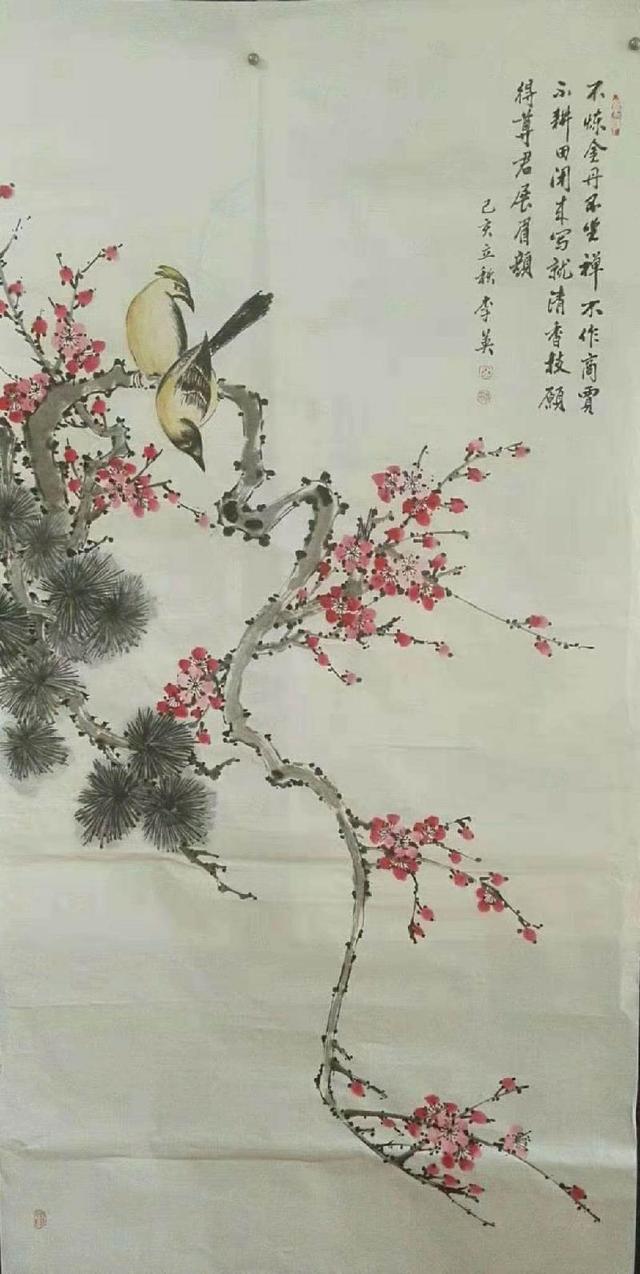 不炼金丹不坐禅不作商贾
不耕田闲来写就清香枝愿
得尊君展眉颜
己亥立秋李英